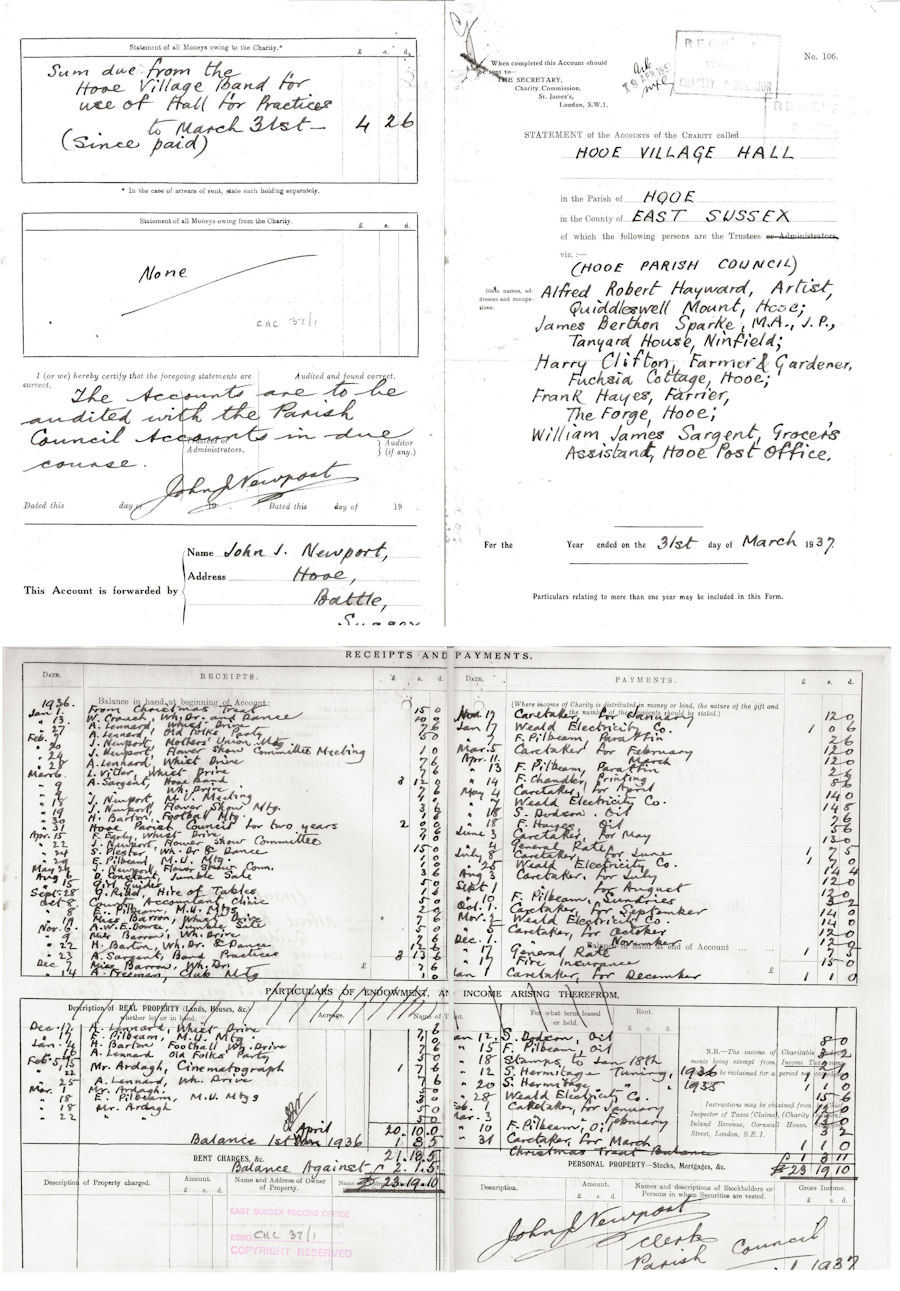 Statement of all Moneys owing to the Charity.*
£ s. d.
Sum due from the
Hooe Village Band for
use of Hall for Practices
to March 31st— 4 2 6
(since paid)
* In the case of arrears of rent, state each holding separately.
Statement of all Moneys owing from the Charity.
£ s. d.
None
CHC 37/1
I (or we) hereby certify that the foregoing statements are correct.
Audited and found correct.
The Accounts are to be
audited with the Parish
Council Accounts in due
course.
Trustees or Administrators.
Auditor (if any.)
John J Newport
Dated this day of 19 Dated this day of 19
This Account is forwarded by
Name John J. Newport,
Address Hooe,
Battle,
Sussex
When completed this Account should
be sent to—
THE SECRETARY,
Charity Commission,
St. James's,
London, S.W.1.
No. 106.
STATEMENT of the Accounts of the CHARITY called
HOOE VILLAGE HALL
in the Parish of HOOE
in the County of EAST SUSSEX
of which the following persons are the Trustees or Administrators,
viz. :—
(HOOE PARISH COUNCIL)
State names, addresses and occupations.
Alfred Robert Hayward, Artist,
Quiddleswell Mount, Hooe;
James Berthon Sparke, M.A., J.P.,
Tanyard House, Ninfield;
Harry Clifton, Farmer & Gardener,
Fuchsia Cottage, Hooe;
Frank Hayes, Farrier,
The Forge, Hooe;
William James Sargent, Grocer's
Assistant, Hooe Post Office.
For the Year ended on the 31st day of March 1937.
Particulars relating to more than one year may be included in this Form.
RECEIPTS AND PAYMENTS.
DATE. RECEIPTS. £ s. d.
1936. Balance in hand at beginning of Account:
Jan. From Christmas Treat 15 0
" 13. W. Crouch, Wh. Dr. and Dance 10 0
" 27 A. Lennard, Whist Drive 7 6
A. Lennard, Old Folks' Party 5 0
Feb. 7 J. Newport, Mothers' Union Mtg
" 20 J. Newport, Flower Show Committee Meeting 1 0
" 24 A. Lennard, Whist Drive 7 6
" 28 Whist Drive 7 6
Mar. 6 A. Sargent, Hooe Band 3 12 0
" 9 Wh. Drive
J. Newport, M.U. Meeting
" 18 J. Newport, Flower Show Mtg.
" 19 H. Barton, Football Mtg.
" 31 Hooe Parish Council for two years 2 0 0
Apr. 15 F. Early, Whist Drive 7 6
" 22 J. Newport, Flower Show Committee
" 24 Wh. Dr & Dance 15 0
" 29 E. Pilbeam, M.U. Mtg. 1 0
May J. Newport, Flower Show Comm.
Aug 6 Jumble Sale
" 15 Girl Guides 5 0
Sept. 28 Hire of Tables 1 6
Oct 8 County Accountant Clinic 5 0
" 8 E. Pilbeam, M.U. Mtgs
Miss Barron, Whist Drive 7 6
Nov. 6 Jumble Sale
" 9 Miss Barron, Wh. Drive
" 22 H. Barton, Wh. Dr. & Dance 12 6
" 23 A. Sargent, Band Practices 3 13 6
Dec 7 Miss Barron, Wh. Dr. 7 6
" 14 A. Freeman, Club Mtg 1 0
DATE. PAYMENTS. £ s. d.
(Where income of Charity is distributed in money or kind, the nature of the gift and the number of the recipients should be stated.)
Caretaker for January 12 0
Jan 17 Weald Electricity Co. 1 0 6
F. Pilbeam, Paraffin 2 6
Mar. 5 Caretaker for February 12 0
Apr. 11 March 12 0
" 13 F. Pilbeam, Paraffin 2 6
" 14 F. Chandler, Printing 8 6
May 4 Caretaker for April 14 0
" 7 Weald Electricity Co. 14 8
" 18 S. Dodson, Oil 7 6
" 18 F. Hayes, Oil 5 6
June 3 Caretaker, for May 13 0
" 4 General Rate 1 7 5
July 8 Caretaker for June
" 25 Weald Electricity Co.
Aug 3 Caretaker, for July
Sept 1 for August 12 0
" 19 F. Pilbeam, Sundries 3 2
Oct. 1. Caretaker, for September 14 0
Nov. 2 Weald Electricity Co.
" 5 Caretaker, for October 12 0
Dec. 1. November 12 0
Balance in hand at end of Account ... ...
" 17 General Rate 1 7 5
" 17 Fire Insurance 15 0
Jan 1 Caretaker, for December 1 1 0
PARTICULARS OF ENDOWMENT, AND INCOME ARISING THEREFROM.
Description of REAL PROPERTY (Lands, Houses, &c.) whether let or in hand.
Acreage.
Name of Tenant.
For what term leased or held.
Rent. £ s. d.
Dec 12. A. Lennard, Whist Drive 7 6
" 17 E. Pilbeam, M.U. Mtg 1 0
Jan. 4 H. Barton Football Wh. Drive 7 6
A. Lennard Old Folks' Party 5 0
Feb. 5, 15 Mr. Ardagh, Cinematograph 1 7 6
" 25 A. Lennard, Wh. Drive 7 6
Mar. 1 Mr. Ardagh 5 0
" 18 E. Pilbeam, M.U. Mtgs 3 0
" 18 Mr. Ardagh 5 0
" 22 " " 5 0
20.10.0
Balance 1st April 1936 1 8 5
21.18.5
RENT CHARGES, &c.
Balance Against £ 2.1.5
£ 23.19.10
Jan 12. S. Dodson, Oil 8 0
" 15 F. Pilbeam, Oil 3 2
" 18 Stamps to Jan 18th
" 12 S. Hermitage Tuning, 1936
" 20 S. Hermitage " 1935 1 1 0
" 28 Weald Electricity Co. 15 6
Feb. 1 Caretaker, for January 12 0
Mar. 3 " February
" 10 F. Pilbeam, Oil 3 2
" 31 Caretaker, for March 1 1 0
Christmas Treat Balance
£ 1 3 11
£ 23 19 10
N.B.—The income of Charities being exempt from Income Tax
be reclaimed for a period not exceeding
Instructions may be obtained from
Inspector of Taxes (Claims), (Charity
Inland Revenue, Cornwall House,
Street, London, S.E.1.
Description of Property charged.
Amount. £ s. d.
Name and Address of Owner of Property.
PERSONAL PROPERTY—Stocks, Mortgages, &c.
Description.
Amount. £ s. d.
Names and descriptions of Stockholders or Persons in whom Securities are vested.
Gross Income. £ s. d.
EAST SUSSEX RECORD OFFICE
ESRO CHC 37/1
COPYRIGHT RESERVED
John J Newport
Clerk
Parish Council
1937